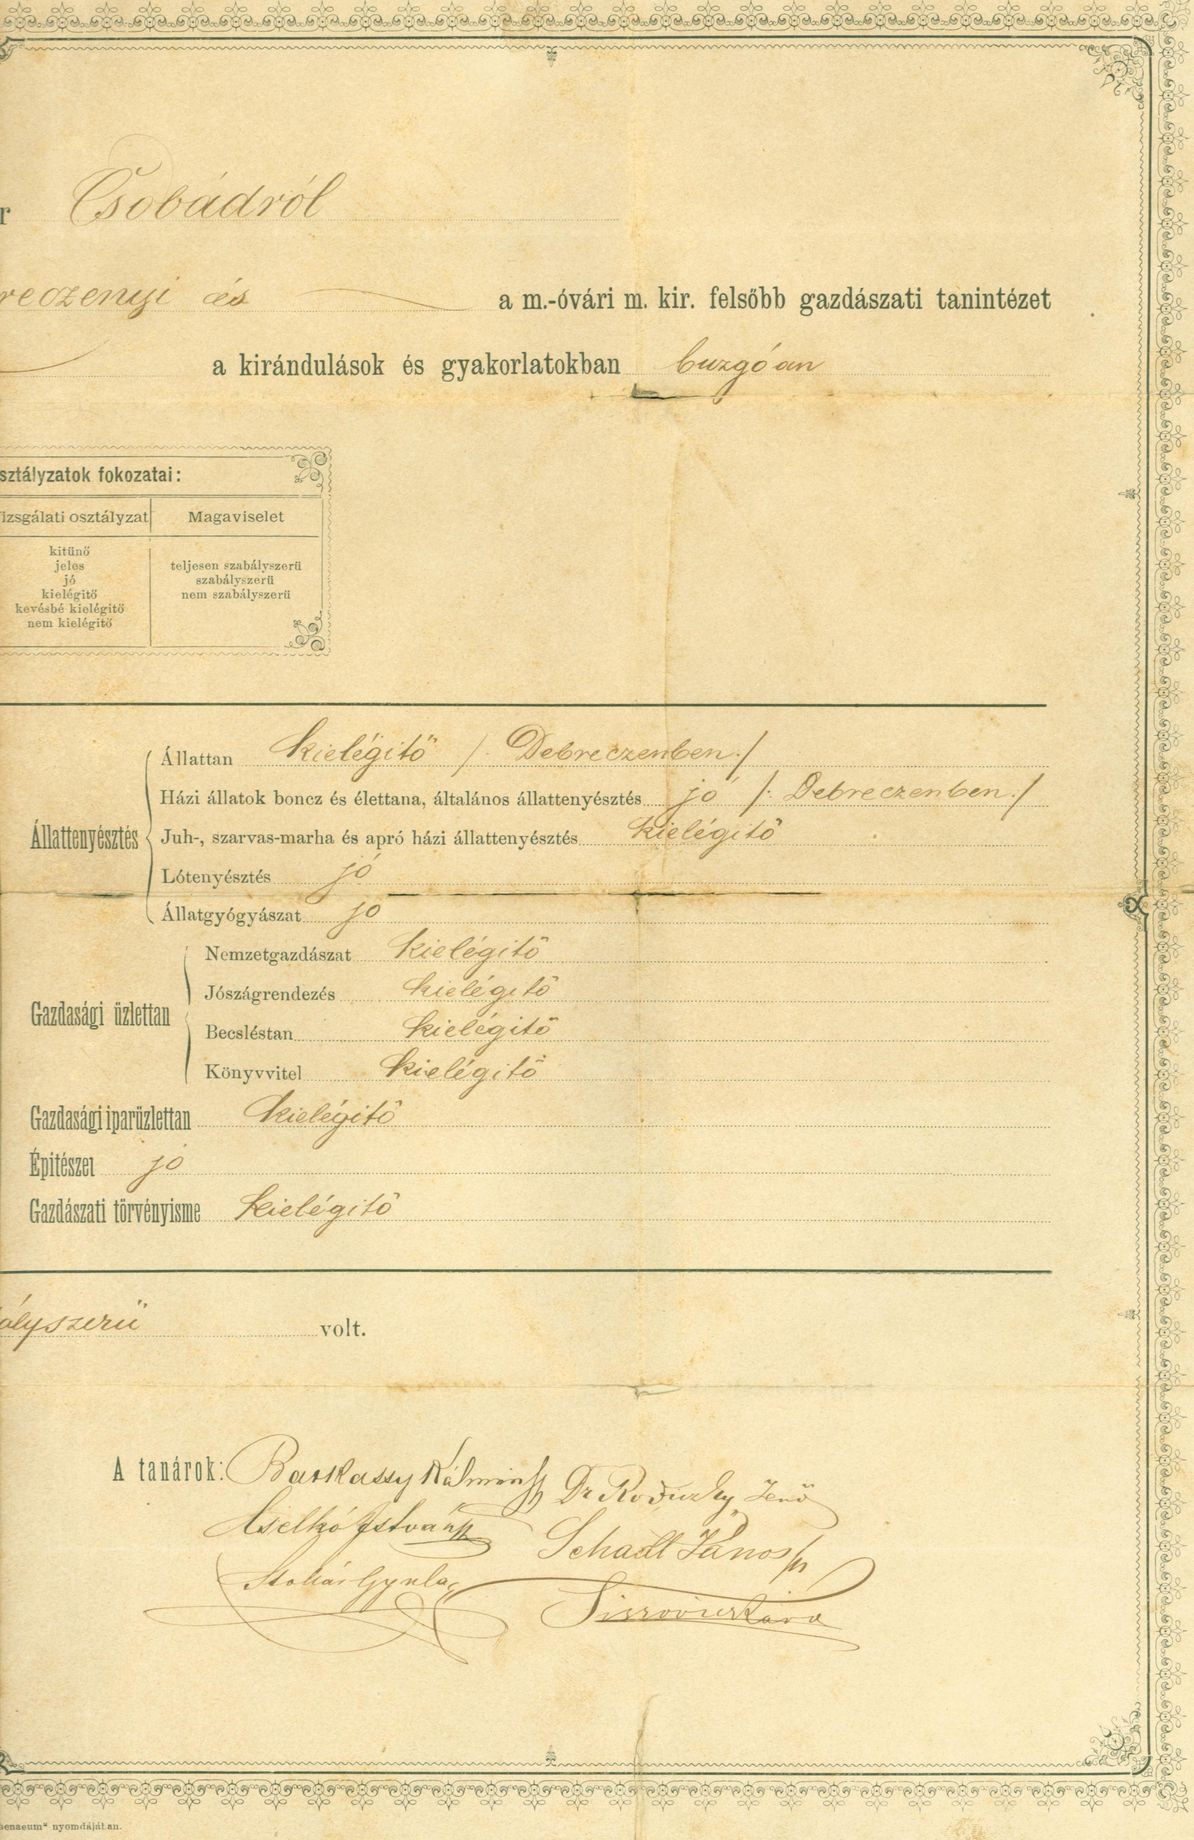 r Csobádról
reczenyi és a m.-óvári m. kir. felsőbb gazdászati tanintézet
a kirándulások és gyakorlatokban buzgóan
sztályzatok fokozatai:
izsgálati osztályzat Magaviselet
kitünő
jeles teljesen szabályszerü
jó szabályszerü
kielégitő nem szabályszerü
kevésbé kielégitő
nem kielégitő
Állattan kielégitő /. Debreczenben ./
Házi állatok boncz és élettana, általános állattenyésztés jó /. Debreczenben ./
Állattenyésztés Juh-, szarvas-marha és apró házi állattenyésztés kielégitő
Lótenyésztés jó
Állatgyógyászat jó
Nemzetgazdászat kielégitő
Jószágrendezés kielégitő
Gazdasági üzlettan
Becsléstan kielégitő
Könyvvitel kielégitő
Gazdasági iparüzlettan kielégitő
Épitészet jó
Gazdászati törvényisme kielégitő
ályszerü volt.
A tanárok: Kálmán Dr Jenő
István János
Gyula
henaeum" nyomdájában.